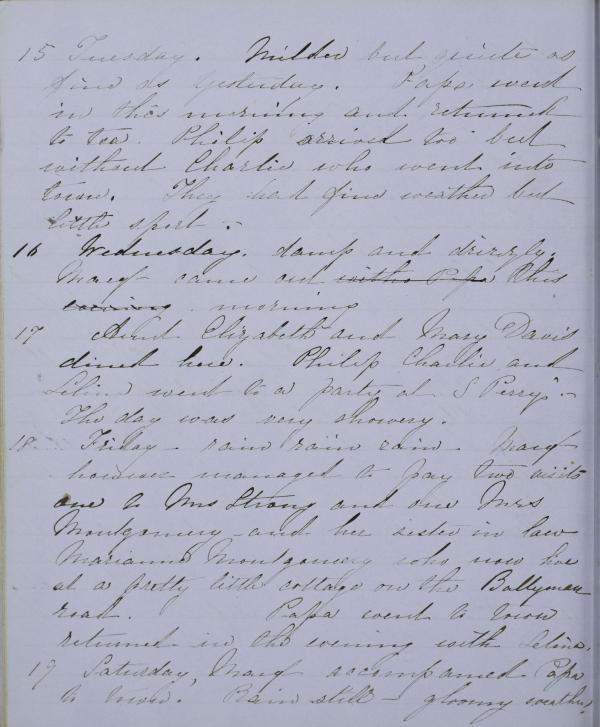 15 Tuesday. Milder but quite as
fine as yesterday. Papa went
in this morning and returned
to tea. Philip arrived too but
without Charlie who went into
town. They had fine weather but
little sport -
16 Wednesday. damp and drizzly.
Marg came out with Papa this
evening morning
17 Aunt Elizabeth and Mary Davis
dined here. Philip Charlie and
Selina went to a party at S Perry's -
The day was very showery.
18 Friday - rain rain rain - Marg
however managed to pay two visits
one to Mrs Strong and one Mrs
Montgomery and her sister in law
Marianne Montgomery who now live
at a pretty little cottage on the Ballyman
road. Papa went to town
returned in the evening with Selina.
19 Saturday, Marg accompanied Papa
to town. Rain still - gloomy weather,